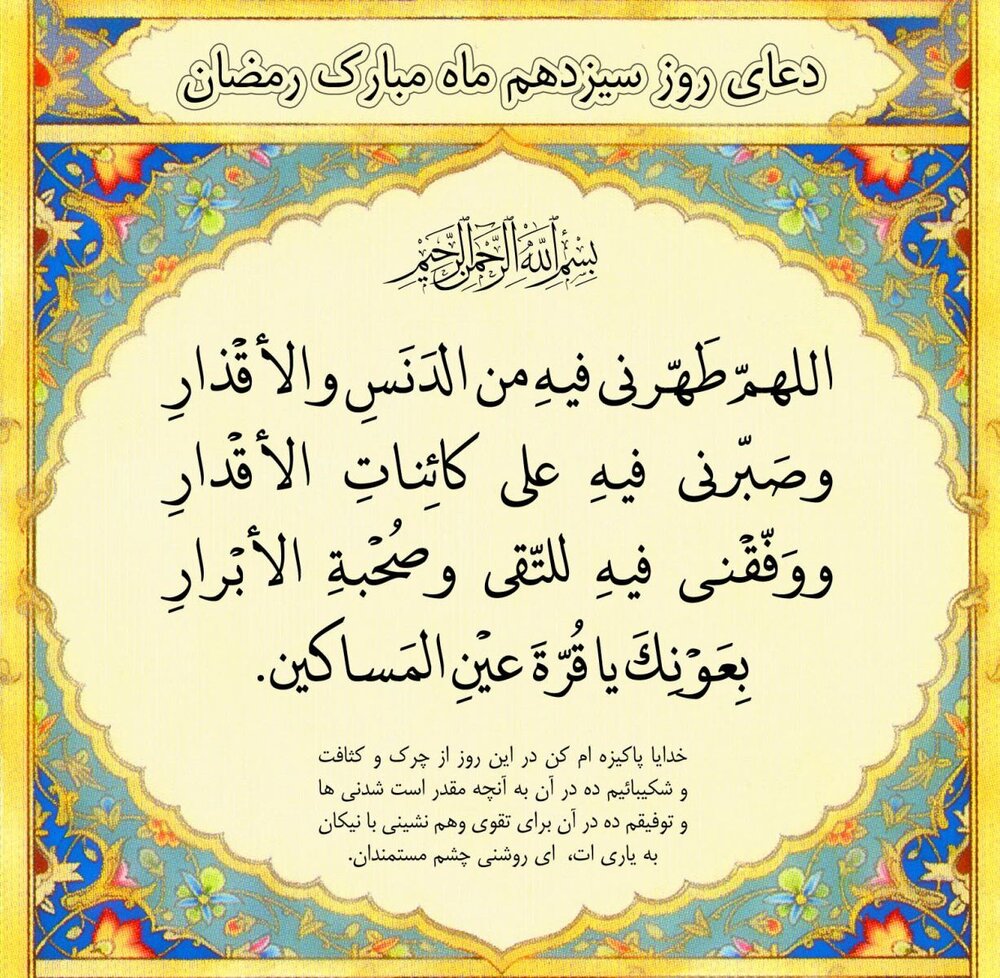 دعای روز سیزدهم ماه مبارک رمضان
بِسْمِ اللَّهِ الرَّحْمَٰنِ الرَّحِيمِ
اللهمّ طَهّرنی فیهِ من الدَنَسِ والأقْذارِ
وصَبّرنی فیهِ علی کائِناتِ الأقْدارِ
ووَفّقْنی فیهِ للتّقی وصُحْبةِ الأبْرارِ
بِعَوْنِكَ یا قُرّةَ عیْنِ المَساکین.
خدایا پاکیزه ام کن در این روز از چرک و کثافت
و شکیبائیم ده در آن به آنچه مقدر است شدنی ها
و توفیقم ده در آن برای تقوی وهم نشینی با نیکان
به یاری ات، ای روشنی چشم مستمندان.